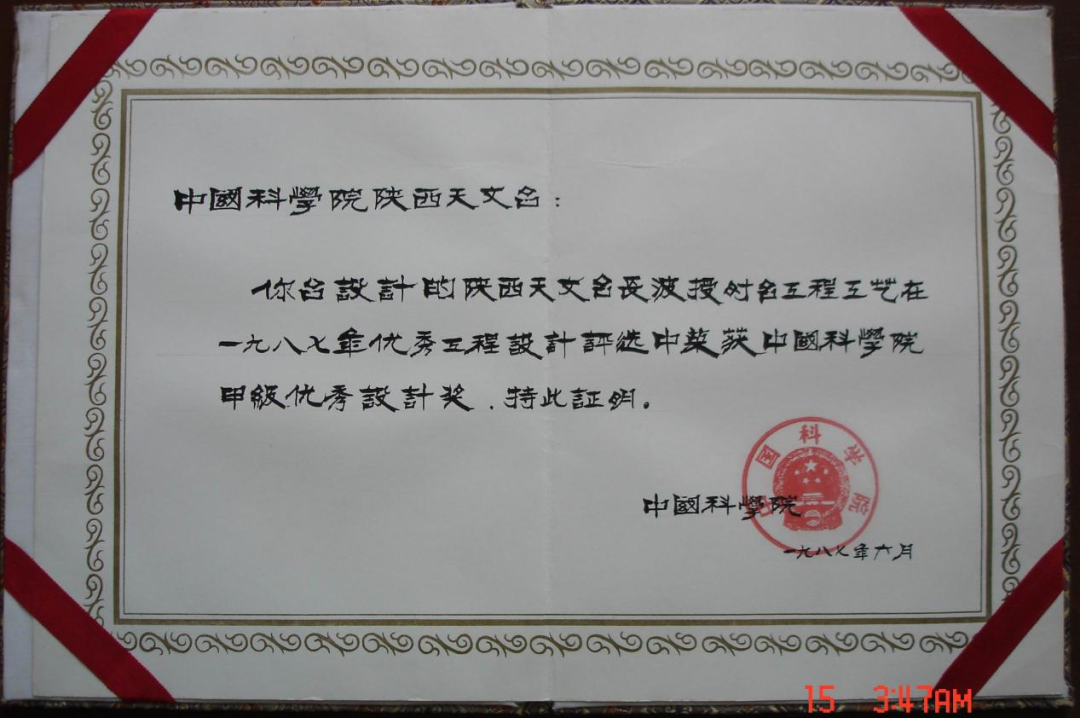 中國科學院陕西天文台：
你台設計的陕西天文台長波授时台工程工艺在
一九八七年优秀工程設計評选中荣获中國科學院
甲級优秀設計奖．特此証明。
中国科学院
中國科學院
一九八七年六月
15 3:47AM